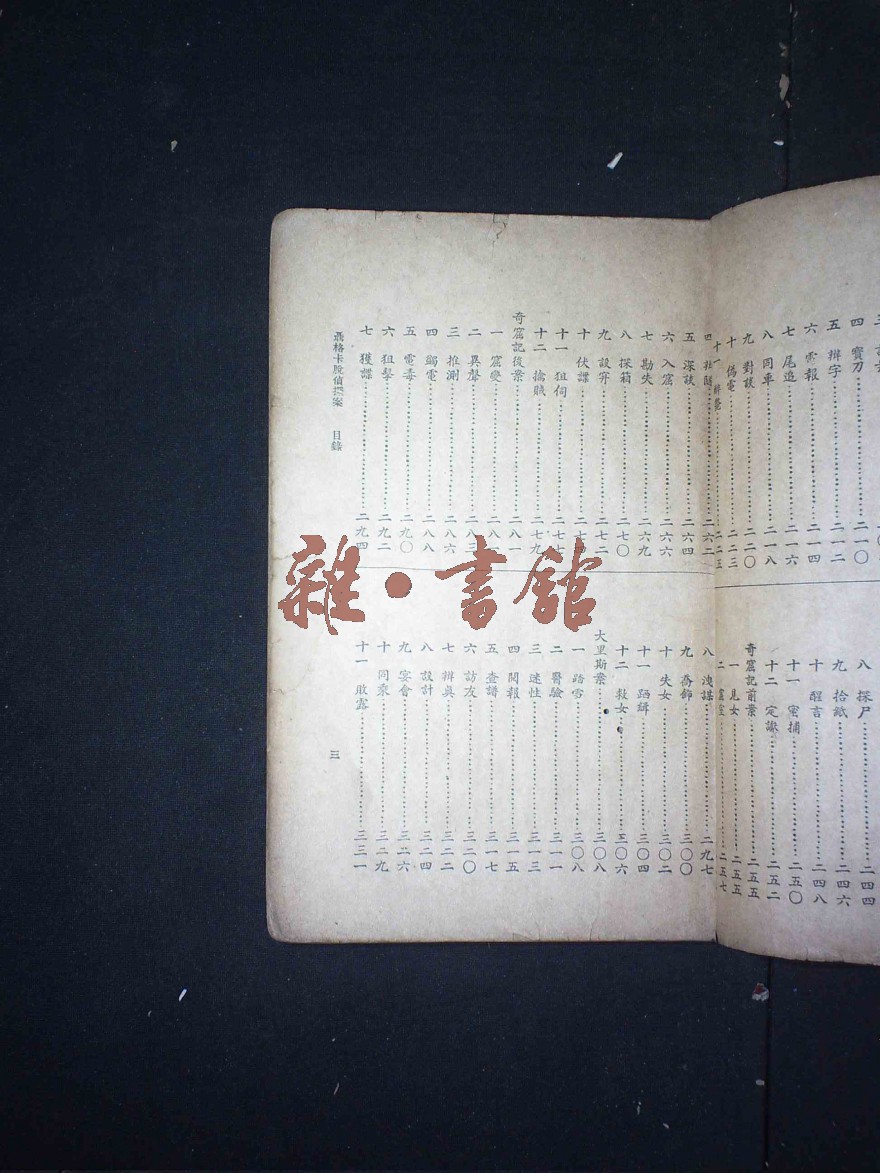 四 寶刀 二一〇
五 辨字 二一二
六 電報 二一四
七 尾追 二一六
八 同車 二一八
九 對談 二二〇
十 偽電 二二三
十一
八 探尸 二四四
九 拾紙 二四六
十 醒言 二四八
十一 密捕 二五〇
十二 定讞 二五二
奇窟記前案 二五五
一 見女 二五五
二 窟室 二五七
四 二六二
五 深談 二六四
六 入窟 二六六
七 勘失 二六九
八 探箱 二七〇
九 設穽 二七二
十 伏諜
十一 狙伺
十二 擒賊 二七九
奇窟記後案 二八一
一 窟變 二八一
二 異聲 二八三
三 推測 二八六
四 蠲電 二八八
五 電毒 二九〇
六 狙擊 二九二
七 獲諜 二九四
八 洩謀 二九七
九 喬飾 三〇〇
十 失女 三〇二
十一 跴緝 三〇四
十二 救女 三〇六
大里斯案 三〇八
一 踏雪 三〇八
二 醫驗 三一一
三 迷性 三一三
四 閱報 三一五
五 查譜 三一七
六 訪友 三二〇
七 辨奧 三二二
八 設計 三二四
九 宴會 三二六
十 同乘 三二九
十一 敗露 三三一
聶格卡脫偵探案 目錄
三
雜·書館